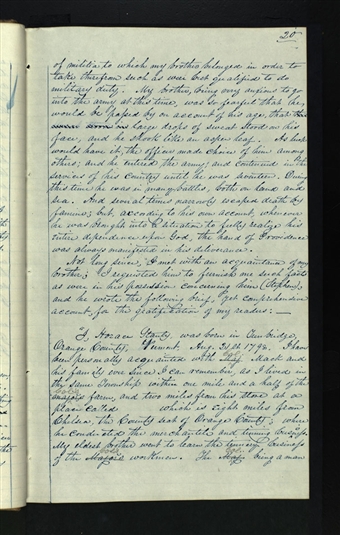 20
of militia to which my brother belonged in order to
take therefrom such as were best qualified to do
military duty. My brother, being very anxious to go
into the army at this time, was so fearful that he
would be passed by on account of his age, that
large drops of sweat stood on his
face, and he shook like an aspen leaf. As luck
would have it, the officer made choice of him among
others; and he entered the army, and continued in the
services of his Country until he was seventeen. During
this time he was in many battles, both on land and
sea. And several times narrowly escaped death by
famine; but, according to his own account, whenever
he was brought into a situation to fully realize his
entire dependence upon God, the hand of Providence
was always manifested in his deliverance.
Not long since, I met with an acquaintance of my
brother; I requested him to furnish me such facts
as were in his possession concerning him (Stephen);
and he wrote the following brief, yet comprehensive
account, for the gratification of my readers:—
"I, Horace Stanly, was born in Tunbridge,
Orange County, Vermont, Aug. 21st 1798. I have
been personally acquainted with Maj. Mack and
his family ever since I can remember, as I lived in
the same township, within one mile and a half of the
majors farm, and two miles from his store at a
place called which is eight miles from
Chelsea, the County seat of Orange County; where
he conducted the merchantile and tinning business.
My eldest brother went to learn the tinning business
of the Majors workmen. The Maj. being a man